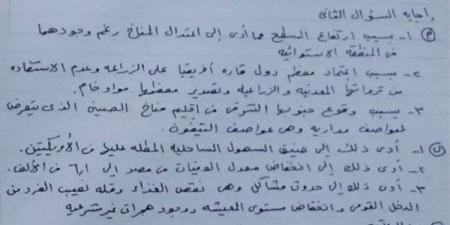 إجابة السؤال الثانى
(أ) ١- بسبب ارتفاع السطح مما أدى إلى اعتدال المناخ رغم وجودهما
فى المنطقة الاستوائية
٢- بسبب اعتماد معظم دول قارة أفريقيا على الزراعة وعدم الاستفادة
من ثرواتها المعدنية والزراعية وتصدير معظمها مواد خام.
٣- بسبب وقوع جنوبها الشرقى فى إقليم مناخ الصينى الذى يتعرض
لعواصف مدارية وهى عواصف التيفون.
(ب) ١- أدى ذلك إلى ضيق السهول الساحلية المطلة عليها فى الأمريكتين.
٢- أدى ذلك إلى انخفاض معدل الوفيات فى مصر إلى ٦٫١ فى الألف.
٣- أدى ذلك إلى حدوث مشاكل وهى نقص الغذاء وقلة نصيب الفرد من
الدخل القومى وانخفاض مستوى المعيشة ووجود هجرات غير شرعية